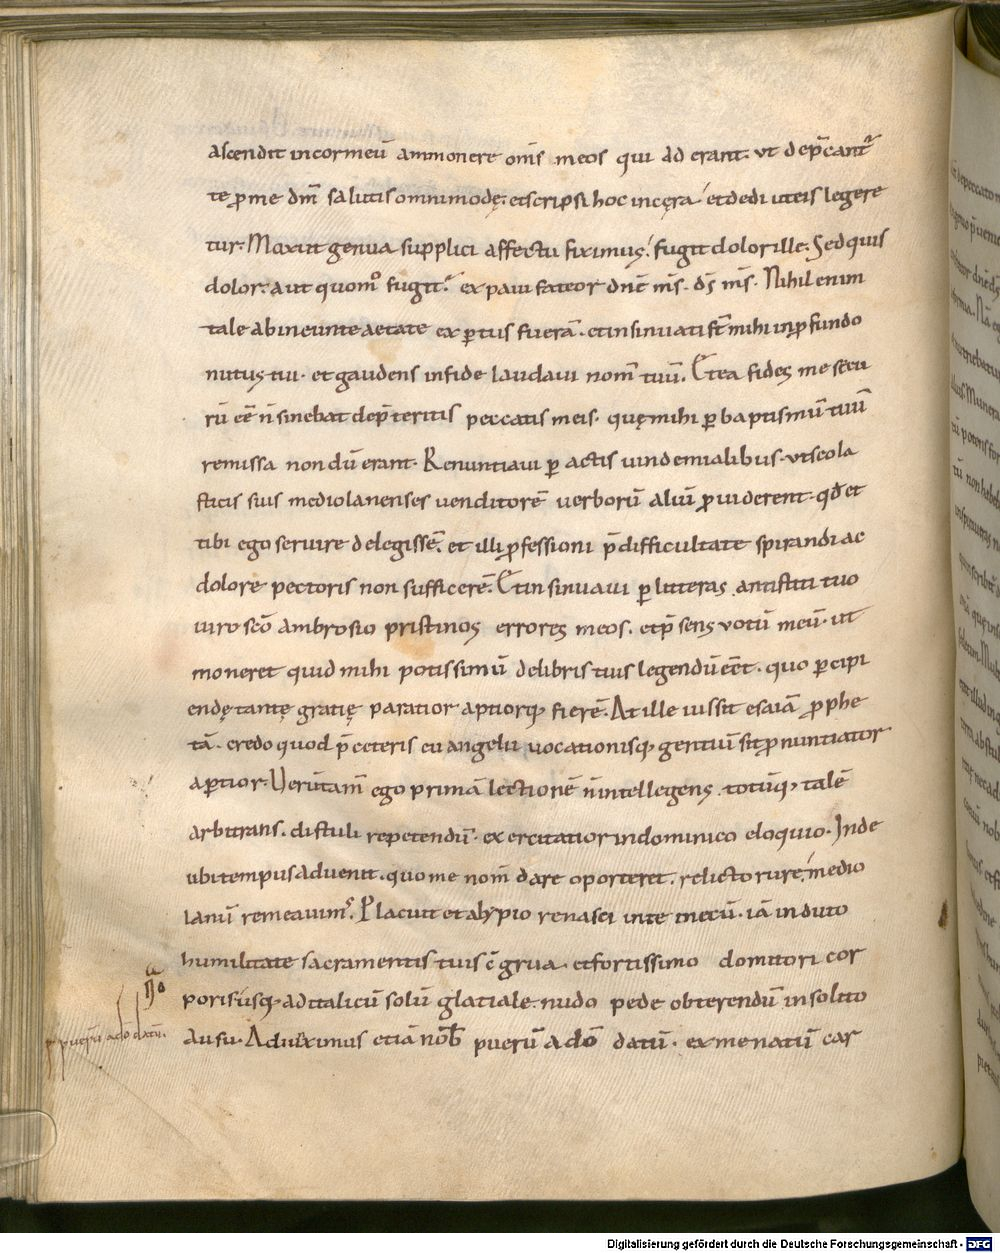 ascendit incormeū ammonere om̄s meos qui ad erant. vt dep̄cant᷑
te ꝑme dn̄m salutis omnimodę. etscripsi hoc incęra et dedi uteis legere
tur. Moxut genua supplici affectu fiximus. fugit dolorille. Sedquis
dolor. aut quom̊ fugit. expaui fateor dn̄e m̄s. ds̄ m̄s. Nihil enim
tale abineunte aetate exꝑtus fuerā. etinsinuati st̄ mihi inꝓfundo
nutus tui. et gaudens infide laudaui nom̄ tuū. Etea fides me secu
rū eē n̄ sinebat dep̄teritis peccatis meis. quęmihi ꝑ baptismū tuū
remissa nondū erant. Renuntiaui ꝑ actis uindemialibus. vtscola
sticis suis mediolanenses uenditorē uerborū aliū ꝓuiderent. qđ et
tibi ego seruire delegissē. et illi ꝓfessioni p̄ difficultate spirandi ac
dolore pectoris non sufficerē. Etinsinuaui ꝑ litteras antistiti tuo
uiro sc̄o ambrosio pristinos errores meos. etp̄sens votū meū. ut
moneret quid mihi potissimū delibris tuis legendū eēt. quo ꝑcipi
endę tantę gratię paratior aptiorq; fierē. At ille iussit esaiā ꝓphe
tā. credo quod p̄ ceteris euangelii uocationisq; gentiū sit ꝓnuntiator
aꝑtior. Uerūtam̄ ego primā lectionē n̄ intellegens. totūq; talē
arbitrans. distuli repetendū. exercitatior indominico eloquio. Inde
ubi tempus aduenit. quo me nom̄ dare oporteret. relicto rure. medio
lanū remeauim᷒. Placuit et alypio renasci inte mecū. iā induto
humilitate sacramentis tuis c̄grua. etfortissimo domitori cor
poris usq; ad italicū solū glatiale. nudo pede obterendū insolito
ausu. Adiunximus etiā nob̄ puerū adō datū. ex me natū car
ꝑ puerū adō datū.